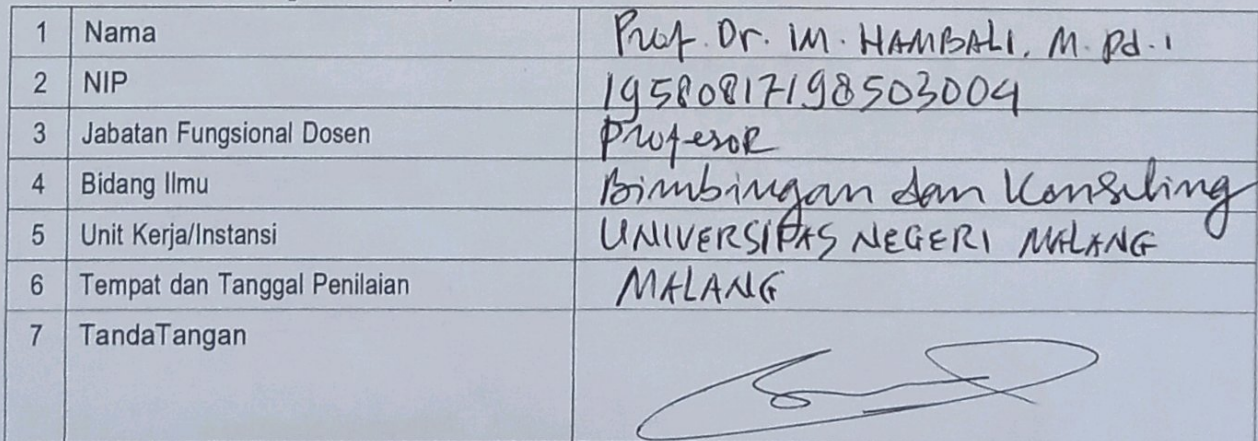 1 Nama Prof. Dr. IM. HAMBALI, M. Pd. I
2 NIP 19580817198503004
3 Jabatan Fungsional Dosen Profesor
4 Bidang Ilmu Bimbingan dan Konseling
5 Unit Kerja/Instansi UNIVERSITAS NEGERI MALANG
6 Tempat dan Tanggal Penilaian MALANG
7 TandaTangan